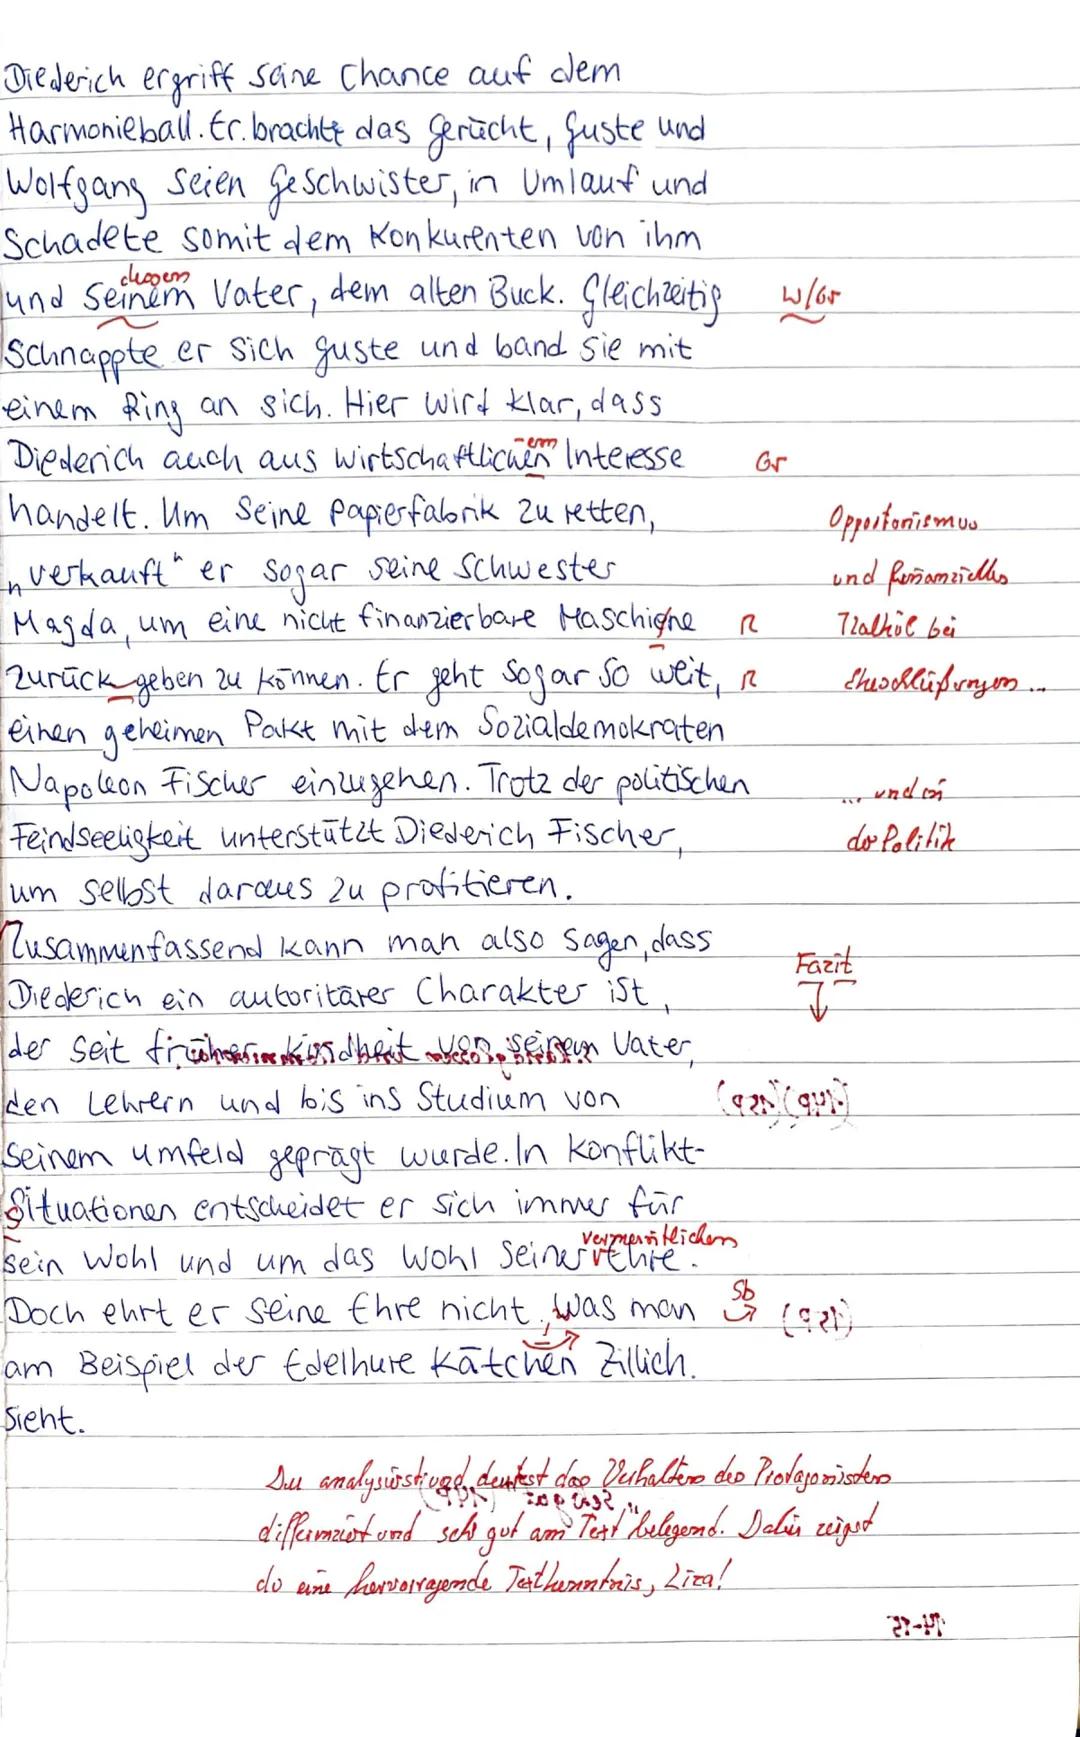 Diederich ergriff seine Chance auf dem
Harmonieball. Er brachte das Gerücht, Guste und
Wolfgang seien Geschwister, in Umlauf und
schadete somit dem Konkurenten von ihm
dessen
und seinem Vater, dem alten Buck. Gleichzeitig W/Gr
schnappte er sich Guste und band sie mit
einem Ring an sich. Hier wird klar, dass
-em
Diederich auch aus wirtschaftlichen Interesse Gr
handelt. Um seine Papierfabrik zu retten, Opportunismus
„verkauft“ er sogar seine Schwester und finanzielles
Magda, um eine nicht finanzierbare Maschiene R Kalkül bei
zurück geben zu können. Er geht sogar so weit, R Eheschließungen ...
einen geheimen Pakt mit dem Sozialdemokraten
Napoleon Fischer einzugehen. Trotz der politischen ... und in
Feindseeligkeit unterstützt Diederich Fischer, der Politik
um selbst daraus zu profitieren.
Zusammenfassend kann man also sagen, dass Fazit
Diederich ein autoritärer Charakter ist,
der seit früher Kindheit von seinem Vater,
den Lehrern und bis ins Studium von
seinem Umfeld geprägt wurde. In Konflikt-
Situationen entscheidet er sich immer für
vermeintlichen
sein Wohl und um das Wohl seiner Ehre.
Doch ehrt er seine Ehre nicht, was man Sb
am Beispiel der Edelhure Kätchen Zillich.
sieht.
Du analysierst und deutest das Verhalten des Protagonisten
differenziert und sehr gut am Text belegend. Dabei zeigst
du eine hervorragende Textkenntnis, Liza!
14-15